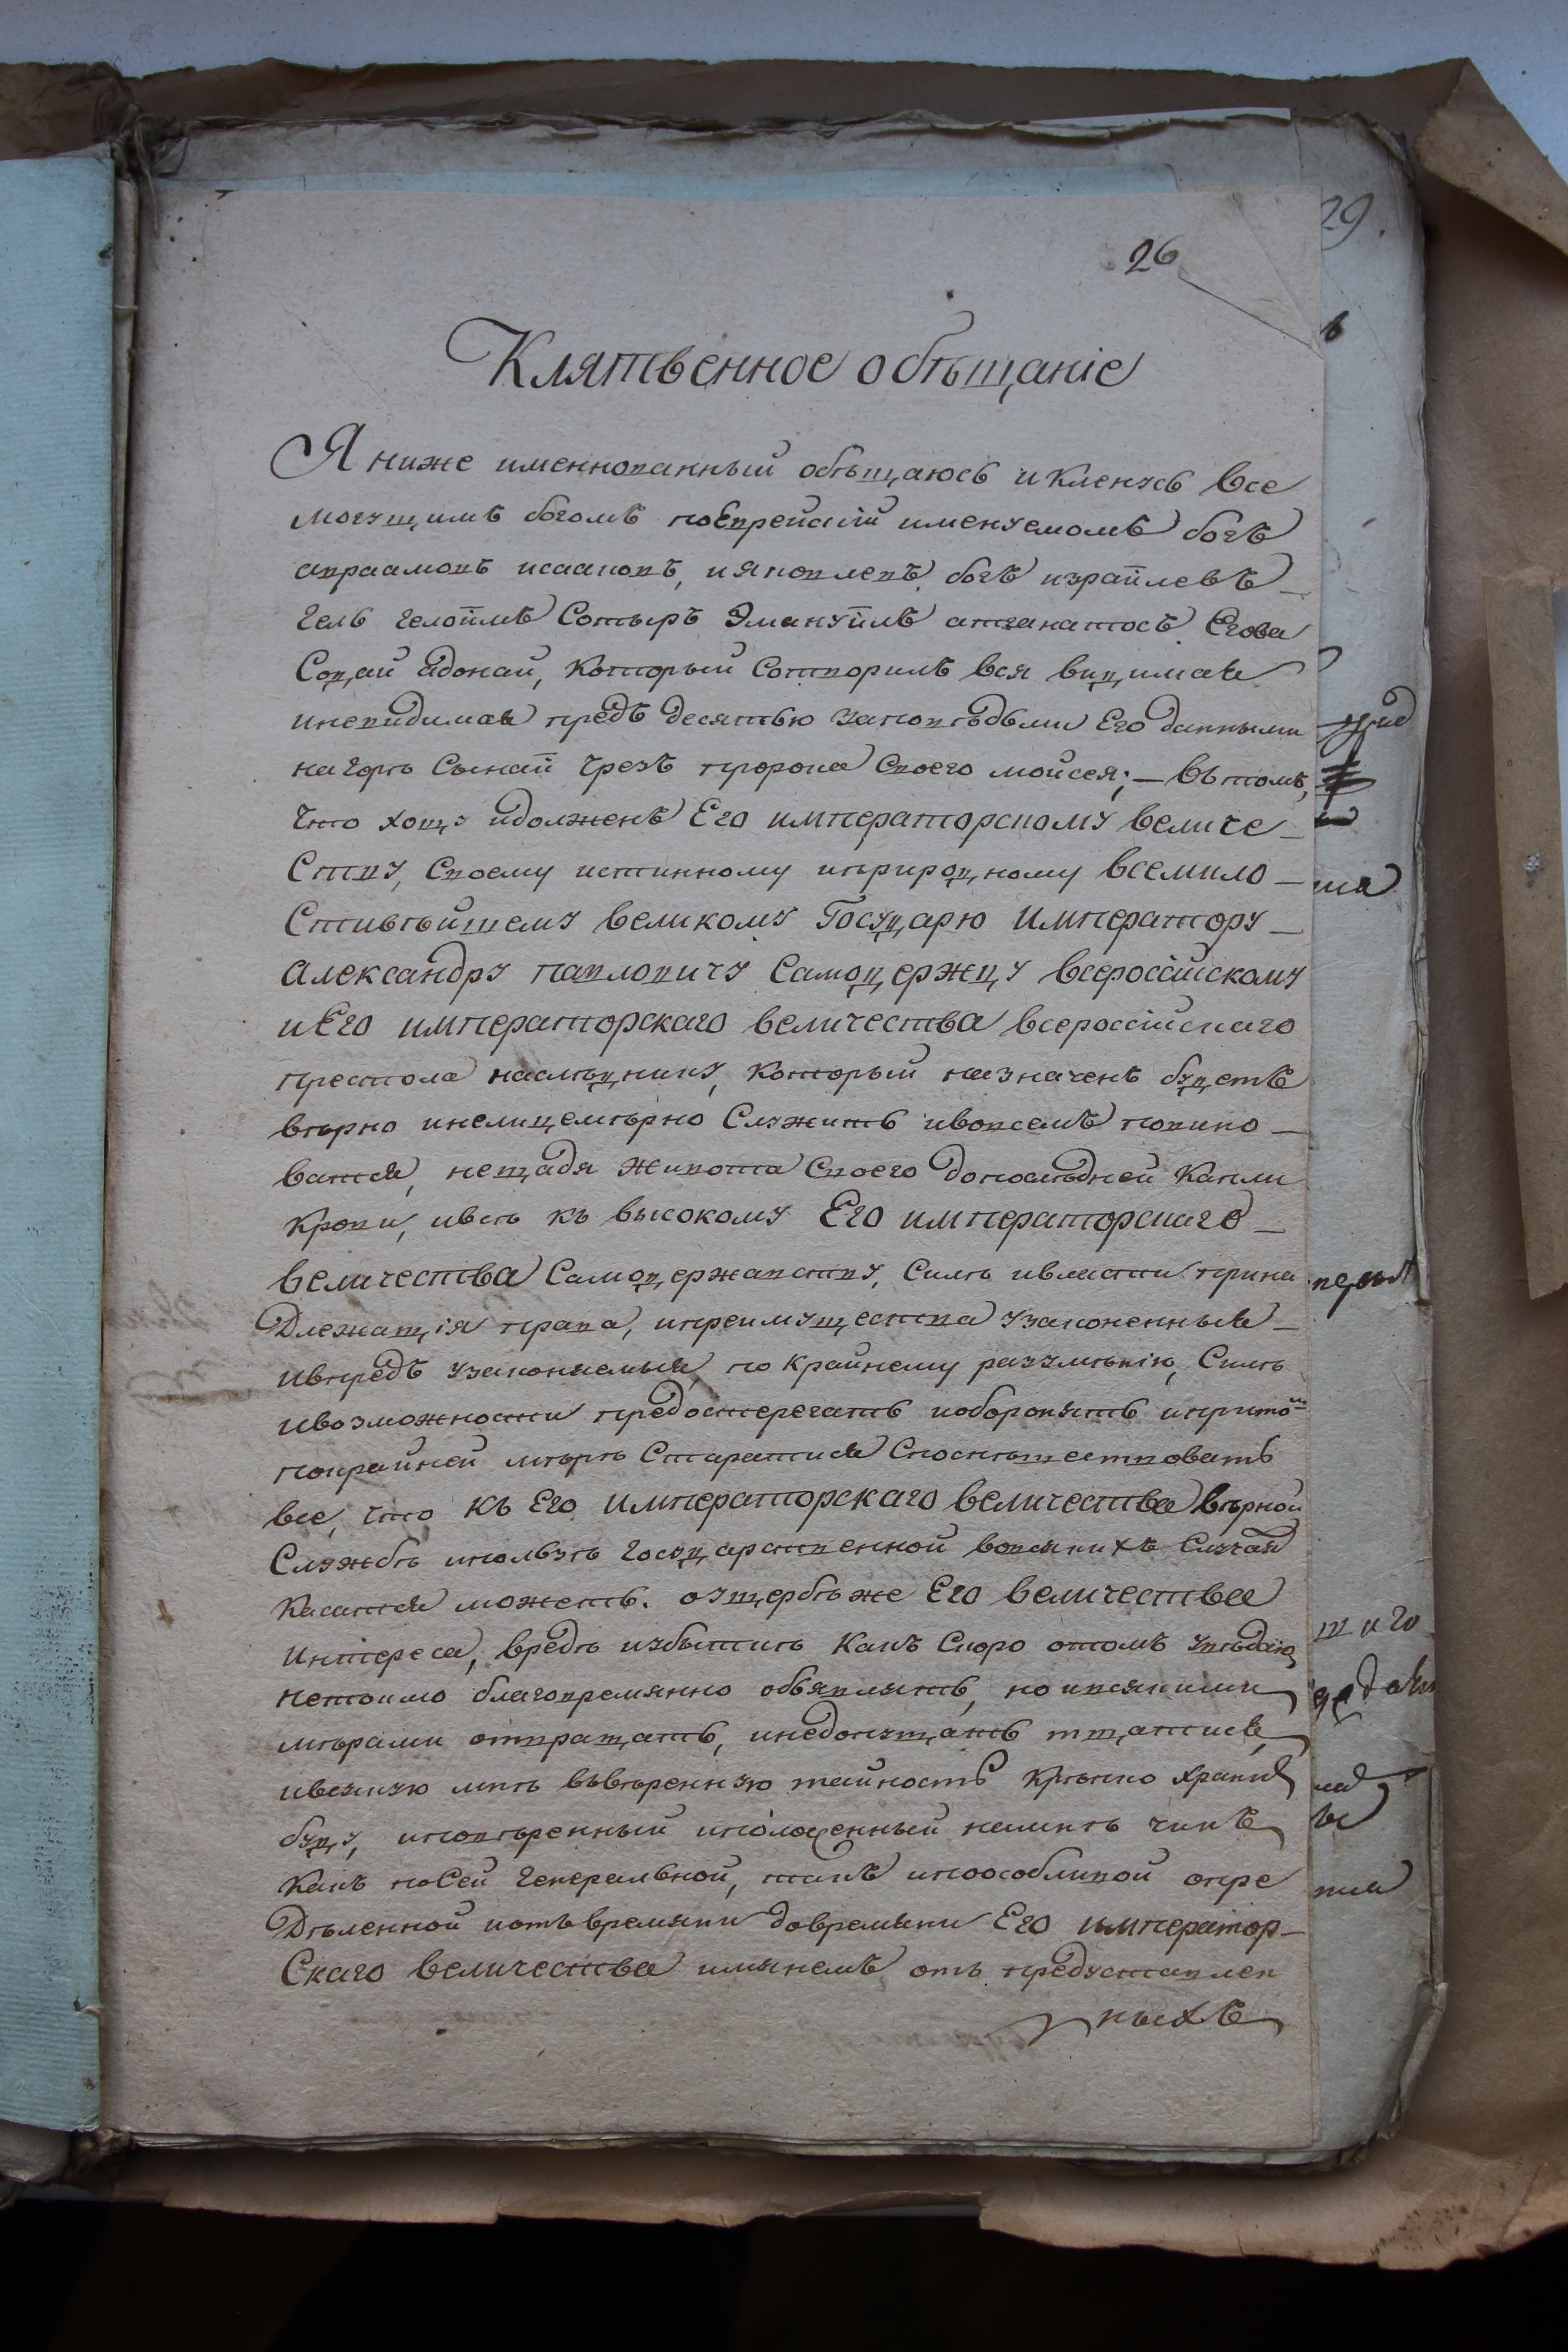 26
29.
Клятвенное обѣщаніе
Я ниже именнованный обѣщаюсь и кленусь все
могущимъ богомъ поеврейскій именуемомъ богъ
авраамовъ исааковъ, и яковлевъ, богъ израйлевъ
гель гелоймъ Сотыръ Эмануйлъ атганатосъ Егова
Содай адонай, который Сотворилъ вся видимая
иневидимая предъ десятью заповѣдьми Его данными
на горѣ Сынай чрезъ пророка Своего мойсея; — вътомъ,
Что хощу идолженъ Его императорскому величе
Ству, Своему истинному иприродному всемило
Стивѣйшему великому Государю императору
александру павловичу Самодержцу всероссійскому
и Его императорскаго величества всероссійскаго
престола наслѣднику, который назначенъ будетъ
вѣрно инелицемѣрно Служить ивовсемъ повино
ватся, нещадя живота Своего допослѣдней капли
крови, ивсѣ къ высокому Его императорскаго
величества Самодержавству, Силѣ ивласти прина
Длежащія права, ипреимущества узаконенныя
ивпредь узаконяемыя, по крайнему разумѣнію, Силѣ
ивозможности предостерегать иоборонять иприто
покрайней мѣрѣ Старатися Споспѣшествовать
все, что къ Его императорскаго величества вѣрной
Службѣ ипользѣ государственной вовсякихъ Случая
касатся можетъ. оущербѣже Его величества
интереса, вредѣ иубыткѣ какъ Скоро отомъ увѣдаю
нетокмо благовремянно объявлять, но ивсякими
мѣрами отвращать, инедопущать тщатися,
ивсякую мнѣ ввѣренную тайность крѣпко храни
буду, иповѣренный иположенный намнѣ чинъ
какъ посей генеральной, такъ ипоособливой опре
Дѣленной иотъвремяни довремяни Его император
Скаго величества имянемъ отъ предуставлен
ныхъ